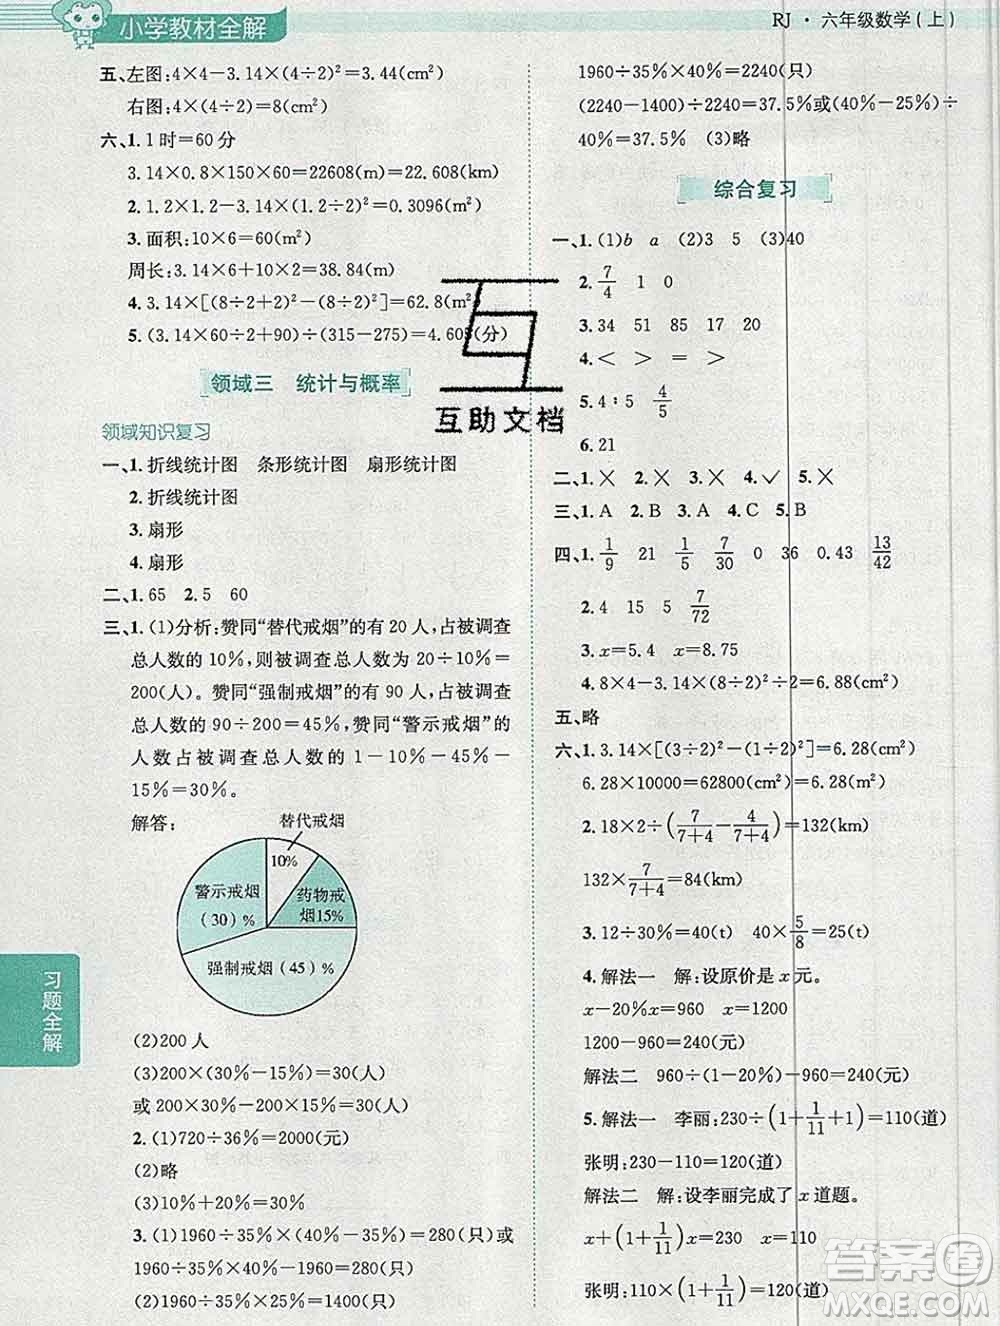 小学教材全解
RJ·六年级数学(上)
五、左图:4×4-3.14×(4÷2)²=3.44(cm²)
右图:4×(4÷2)=8(cm²)
六、1.1时=60分
3.14×0.8×150×60=22608(m)=22.608(km)
2.1.2×1.2-3.14×(1.2÷2)²=0.3096(m²)
3.面积:10×6=60(m²)
周长:3.14×6+10×2=38.84(m)
4.3.14×[(8÷2+2)²-(8÷2)²]=62.8(m²)
5.(3.14×60×2+80)÷(315-275)=4.605(分)
领域三 统计与概率
领域知识复习
一、1.折线统计图 条形统计图 扇形统计图
2.折线统计图
3.扇形
4.扇形
二、1.65 2.5 60
三、1.(1)分析:赞同“替代戒烟”的有20人,占被调查
总人数的10%,则被调查总人数为20÷10%=
200(人)。赞同“强制戒烟”的有90人,占被调查
总人数的90÷200=45%,赞同“警示戒烟”的
人数占被调查总人数的1-10%-45%-
15%=30%。
解答:
替代戒烟
10%
警示戒烟
(30)%
药物戒
烟15%
强制戒烟(45)%
(2)200人
(3)200×(30%-15%)=30(人)
或200×30%-200×15%=30(人)
2.(1)720÷36%=2000(元)
(2)略
(3)10%+20%=30%
3.(1)1960÷35%×(40%-35%)=280(只)或
1960÷35%×40%-1960=280(只)
(2)1960÷35%×25%=1400(只)
1960÷35%×40%=2240(只)
(2240-1400)÷2240=37.5%或(40%-25%)÷
40%=37.5% (3)略
综合复习
一、1.(1)b a (2)3 5 (3)40
2.7/4 1 0
3.34 51 85 17 20
4.< > = >
5.4∶5 4/5
6.21
二、1.× 2.× 3.× 4.✓ 5.×
三、1.A 2.B 3.A 4.C 5.B
四、1.1/9 21 1/5 7/30 0 36 0.43 13/42
2.4 15 5 7/72
3.x=5.4 x=8.75
4.8×4-3.14×(8÷2)²÷2=6.88(cm²)
五、略
六、1.3.14×[(3÷2)²-(1÷2)²]=6.28(cm²)
6.28×10000=62800(cm²)=6.28(m²)
2.18×2÷(7/(7+4)-4/(7+4))=132(km)
132×7/(7+4)=84(km)
3.12÷30%=40(t) 40×5/8=25(t)
4.解法一 解:设原价是x元。
x-20%x=960 x=1200
1200-960=240(元)
解法二 960÷(1-20%)-960=240(元)
5.解法一 李丽:230÷(1+1/11+1)=110(道)
张明:230-110=120(道)
解法二 解:设李丽完成了x道题。
x+(1+1/11)x=230 x=110
张明:110×(1+1/11)=120(道)
习题全解
互助文档
答案圈
MXQE.COM